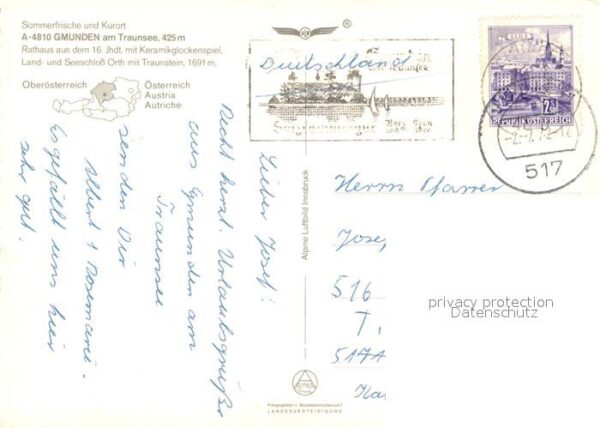 Sommerfrische und Kurort
A-4810 GMUNDEN am Traunsee, 425 m
Rathaus aus dem 16. Jhdt. mit Keramikglockenspiel,
Land- und Seeschloß Orth mit Traunstein, 1691 m.
Oberösterreich
Österreich
Austria
Autriche
Lieber Josef!
Recht herzl. Urlaubsgrüße
aus Gmunden am
Traunsee
senden Dir
Albert + Rosemarie.
Es gefällt uns hier
sehr gut.
Alpine Luftbild Innsbruck
Freigegeben v. Bundesministerium f.
LANDESVERTEIDIGUNG
®
Deutschland
LINZ
2.50
REPUBLIK ÖSTERREICH
517
Herrn Pfarrer
Jose,
516
T.
517A
Ka.
privacy protection
Datenschutz